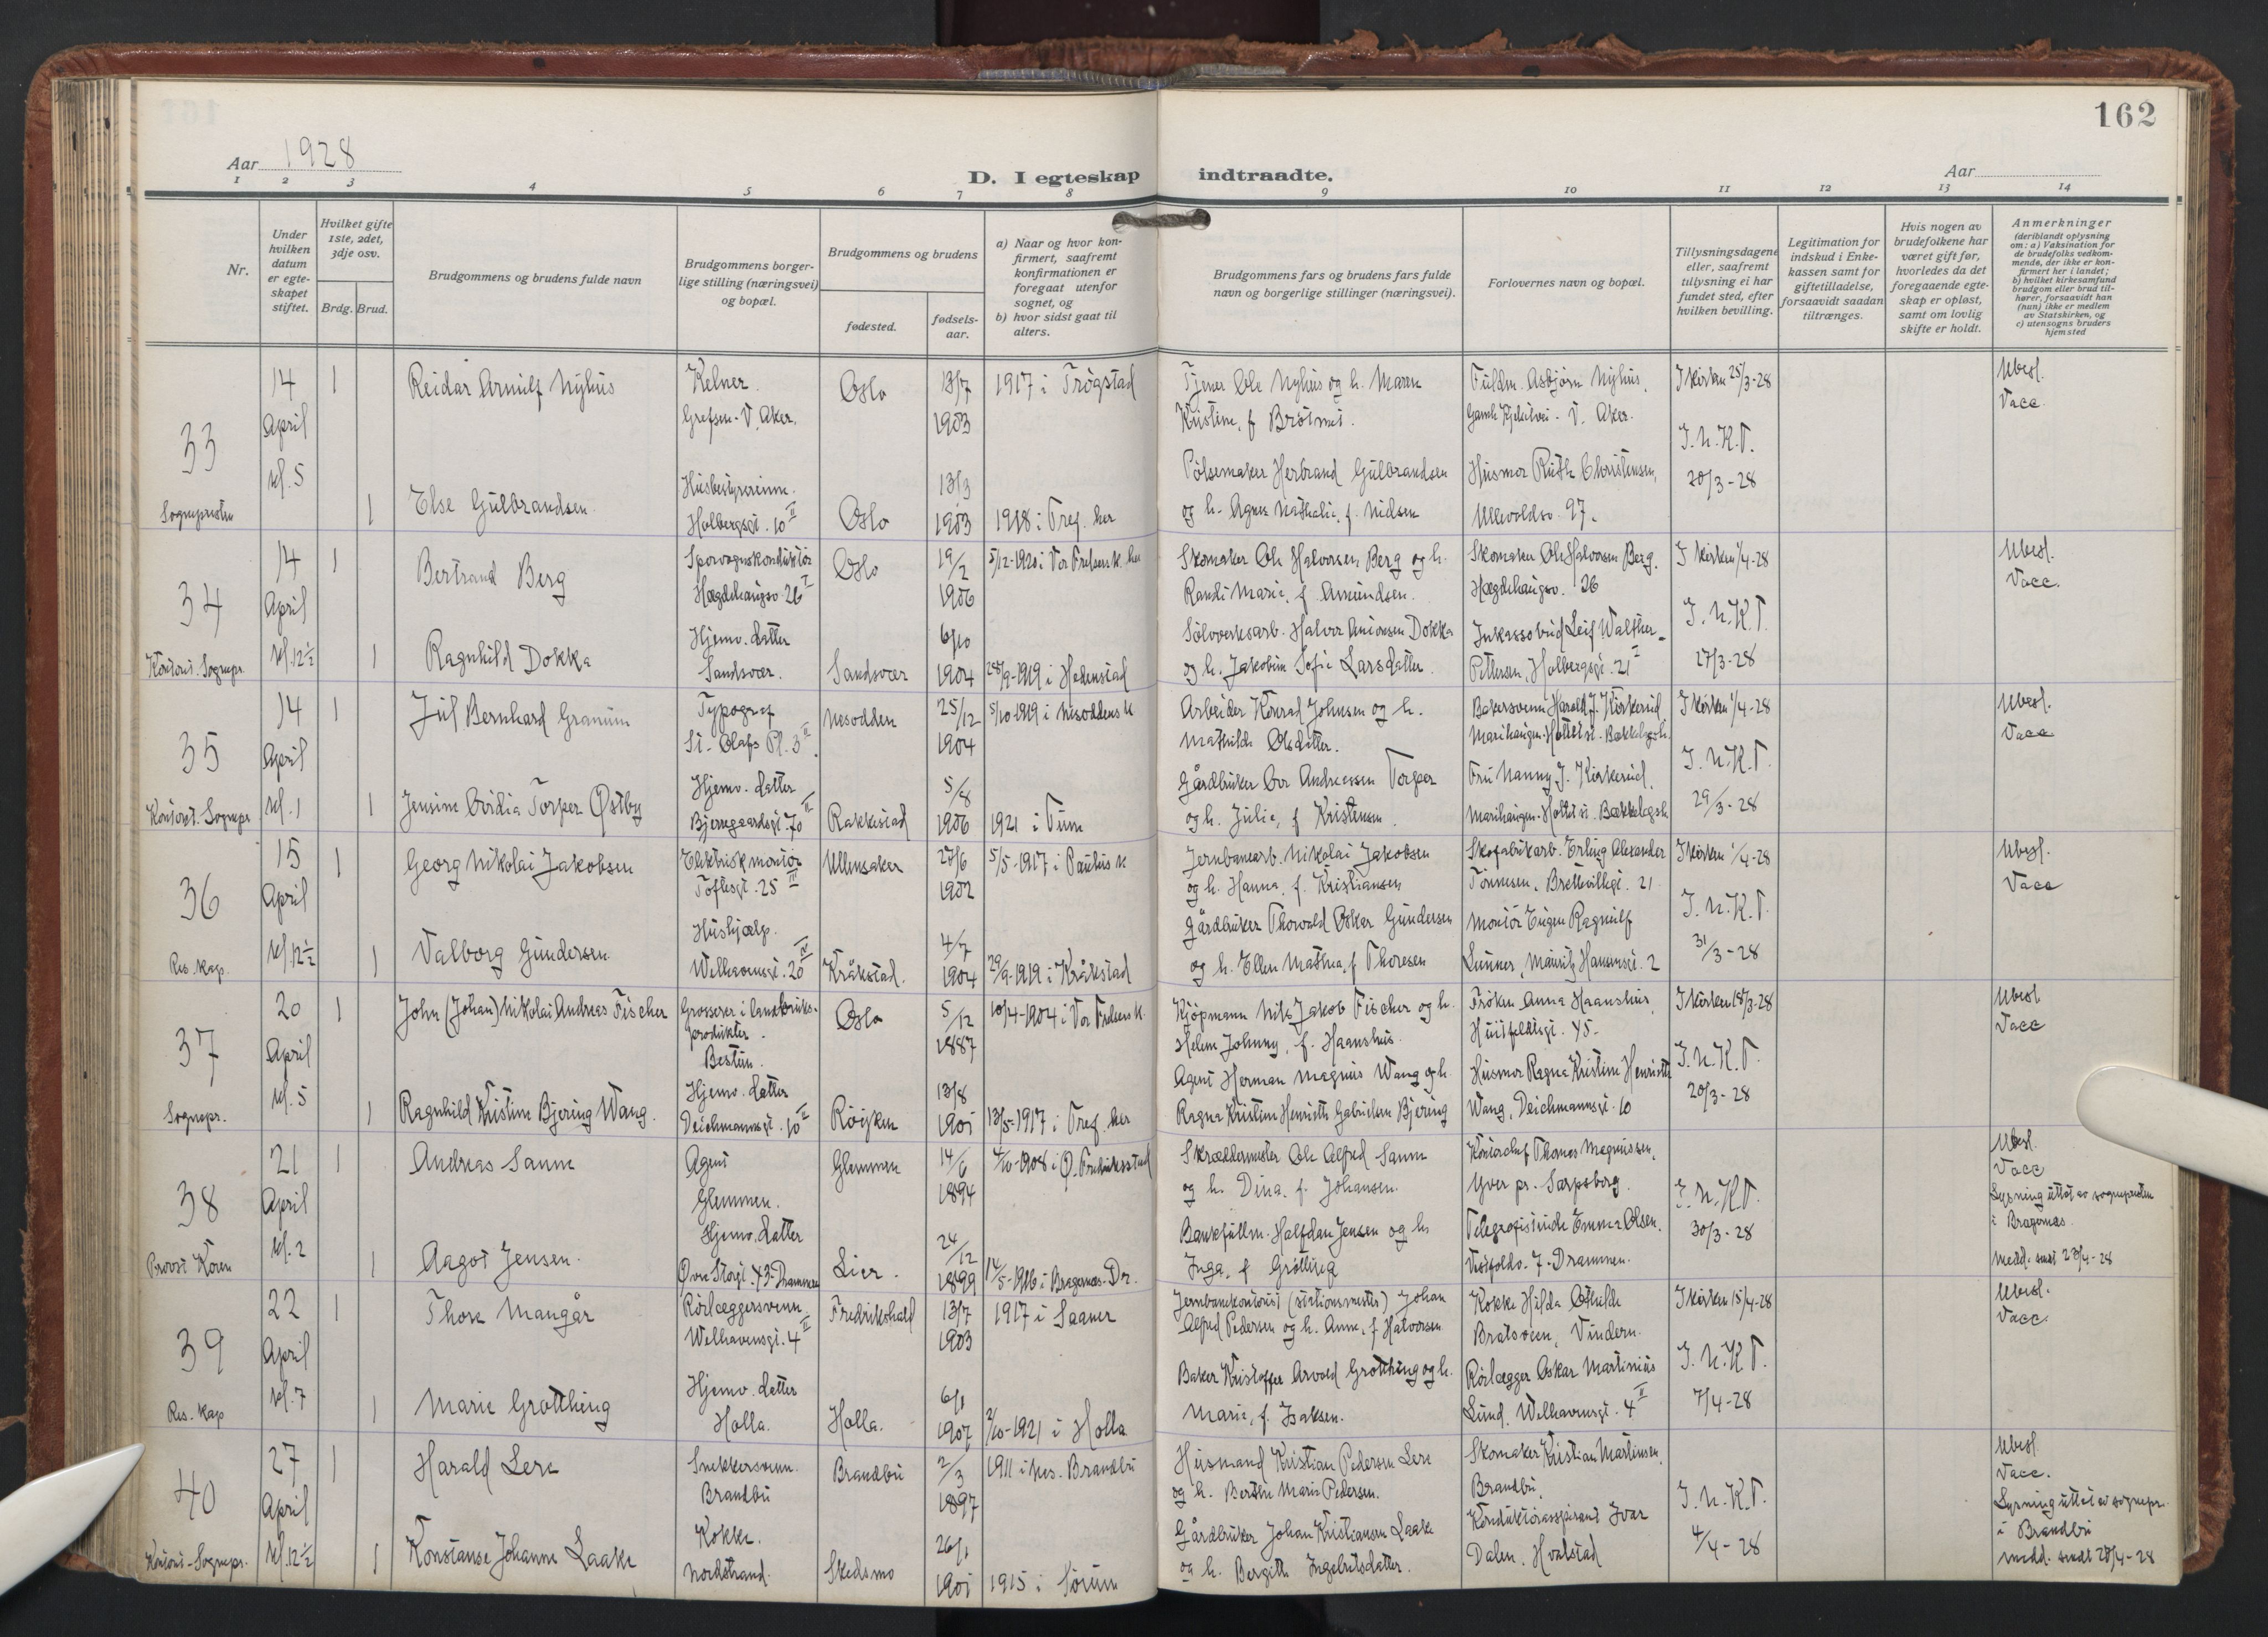 162
Aar 1928
D. I egteskap indtraadte.
Aar
1 2 3 4 5 6 7 8 9 10 11 12 13 14
Nr.
Under hvilken datum er egteskapet stiftet.
Hvilket gifte 1ste, 2det, 3dje osv.
Brdg. Brud.
Brudgommens og brudens fulde navn
Brudgommens borgerlige stilling (næringsvei) og bopæl.
Brudgommens og brudens
fødested.
fødselsaar.
a) Naar og hvor konfirmert, saafremt konfirmationen er foregaat utenfor sognet, og
b) hvor sidst gaat til alters.
Brudgommens fars og brudens fars fulde navn og borgerlige stillinger (næringsvei).
Forlovernes navn og bopæl.
Tillysningsdagene eller, saafremt tillysning ei har fundet sted, efter hvilken bevilling.
Legitimation for indskud i Enkekassen samt for giftetilladelse, forsaavidt saadan tiltrænges.
Hvis nogen av brudefolkene har været gift før, hvorledes da det foregaaende egteskap er opløst, samt om lovlig skifte er holdt.
Anmerkninger
(deriblandt oplysning om: a) Vaksination for de brudefolks vedkommende, der ikke er konfirmert her i landet; b) hvilket kirkesamfund brudgom eller brud tilhører, forsaavidt han (hun) ikke er medlem av Statskirken, og c) utensogns bruders hjemsted
33
Sognepresten
14 April kl. 5
1
Reidar Arnulf Nyhus
Kelner.
Grefsen - V. Aker.
Oslo
13/7 1903
1917 i Trøgstad
Tjener Ole Nyhus og h. Maren
Kristine, f.
Fuldm. Asbjørn Nyhus,
V. Aker.
I kirken 25/3-28
Ubesl.
Vacc.
1
Else Gulbrandsen
Husbestyrerinne.
Holbergsgt. 10 II
Oslo
13/3 1903
1918 i Tref. her
Pølsemaker Herbrand Gulbrandsen
og h. Agnes Nathalie, f. Nielsen
Husmor Ruth Christensen,
Ullevoldsv. 97.
I.N.K.T.
20/3-28
34
Kontorist. Sognepr.
14 April kl. 12½
1
Bertrand Berg
Sporvognskonduktør
Hægdehaugsv. 26 I
Oslo
19/2 1906
5/12-1920 i Vor Frelsers K. her
Skomaker Ole Halvorsen Berg og h.
Randi Marie, f. Amundsen.
Skomaker Ole Halvorsen Berg.
Hægdehaugsv. 26
I kirken 1/4-28
Ubesl.
Vacc.
1
Ragnhild Dokka
Hjemv. datter
Sandsvær.
Sandsvær
6/10 1904
28/9-1919 i Hedenstad
Sølvverksarb. Halvor Dokka
og h. Jakobine Sofie Larsdatter.
Inkassobud Leif Walther-
Pettersen, Holbergsgt. 21 I
I.N.K.T.
27/3-28
35
Kontorist. Sognepr
14 April kl. 1
1
Jul Bernhard Granum
Typograf
St. Olafs Pl. 3 II.
Nesodden
25/12 1904
5/10-1919 i Nesoddens K
Arbeider Konrad Johnsen og h.
Mathilde Olsdatter.
Bakersvenn Harald J. Kirkerud,
Marihaugen
I kirken 1/4-28
Ubesl.
Vacc
1
Jensine Ovidia Torper Østby
Hjemv. datter
Bjerregaardsgt. 70 II
Rakkestad
5/8 1906
1921 i Tune
Gårdbruker Ove Andreassen Torper
og h. Julie, f. Kristensen.
Fru Nanny J. Kirkerud,
Marihaugen
I.N.K.T.
29/3-28
36
Res. kap.
15 April kl. 12½
1
Georg Nikolai Jakobsen
Elektrisk montør
Toftesgt. 25 III
Ullensaker
27/6 1902
5/5-1917 i Paulus K
Jernbanearb. Nikolai Jakobsen
og h. Hanna, f. Kristiansen
Skofabrikarb. Erling Alexander
Tønnesen, Brettevillegt. 21
I kirken 1/4-28
Ubesl.
Vacc
1
Valborg Gundersen
Hushjælp.
Welhavensgt. 20 IV
Kråkstad.
4/7 1904
29/9-1919 i Kråkstad
Gårdbruker Thorvald Oskar Gundersen
og h. Ellen Mathea, f. Thoresen
Montør Eugen Ragnulf
Lunner, Mauritz Hansensgt. 2
I.N.K.T.
31/3-28
37
Sognepr.
20 April kl. 5
1
John (Johan) Nikolai Andreas Fischer
Grosserer i landbruks-
produkter.
Bestun.
Oslo
5/12 1887
10/4-1904 i Vor Frelsers K.
Kjøpmann Nils Jakob Fischer og h.
Helene Johnny, f. Haanshus.
Frøken Anna Haanshus,
Huitfeldtsgt. 45.
I kirken 18/3-28
Ubesl
Vacc
1
Ragnhild Kristine Bjering Wang.
Hjemv. datter
Deichmannsgt. 10 II
Røyken
13/8 1901
13/5-1917 i Tref. her
Agent Herman Magnus Wang og h.
Ragna Kristine Henriette Gabrielsen Bjering
Husmor Ragna Kristine Henriette
Wang, Deichmannsgt. 10
I.N.K.T.
20/3-28
38
Provst Koren
21 April kl. 2
1
Andreas Sanne
Agent
Glemmen.
Glemmen
14/6 1894
4/10-1908 i Ø. Fredriksstad
Skræddermester Ole Alfred Sanne
og h. Dina, f. Johansen.
Kontorchef Thomas Magnussen,
Yven pr. Sarpsborg.
Ubesl.
Vacc
Lysning uttat av sognepresten
i Bragernes.
Medd. sendt 23/4-28
1
Aagot Jensen.
Hjemv. datter
Øvre Storgt. 43 - Drammen
Lier.
24/12 1899
14/5-1916 i Bragernes - Dr.
Bankfullm. Halfdan Jensen og h.
Inga, f. Grøtting
Telegrafistinde Emma Olsen.
Vestfoldv. 7 - Drammen.
I.N.K.T.
30/3-28
39
Res. kap
22 April kl. 7
1
Thore Mangår
Rørlæggersvenn.
Welhavensgt. 4 II
Fredrikshald
13/7 1903
1917 i Saaner
Jernbanekontorist (stationsmester) Johan
Alfred Pedersen og h. Anne, f. Halvorsen
Kokke Hilda Othilde
Bratsveen, Vindern.
I kirken 15/4-28
Ubesl.
Vacc.
1
Marie Grotthing
Hjemv. datter
Holla.
Holla.
6/1 1907
2/10-1921 i Holla
Baker Kristoffer Arvold Grotthing og h.
Marie, f. Isaksen.
Rørlægger Oskar Martinius
Lund, Welhavensgt. 4 II
I.N.K.T.
7/4-28
40
Kontorist - Sognepr.
27 April kl. 12½
1
Harald Lere
Snekkersvenn.
Brandbu
Brandbu
2/3 1897
1911 i Nes. Brandbu
Husmand Kristian Pedersen Lere
og h. Berthe Marie Pedersen.
Skomaker Kristian Martinsen,
Brandbu.
Ubesl
Vacc.
Lysning uttat av sognepr.
i Brandbu
medd. sendt 28/4-28
1
Konstanse Johanne Laake
Kokke.
Nordstrand.
Skedsmo
26/1 1901
1915 i Sørum
Gårdbruker Johan Kristiansen Laake
og h. Bergith Ingebretsdatter.
Konduktøraspirant Ivar
Dalen, Hvalstad
I.N.K.T.
4/4-28